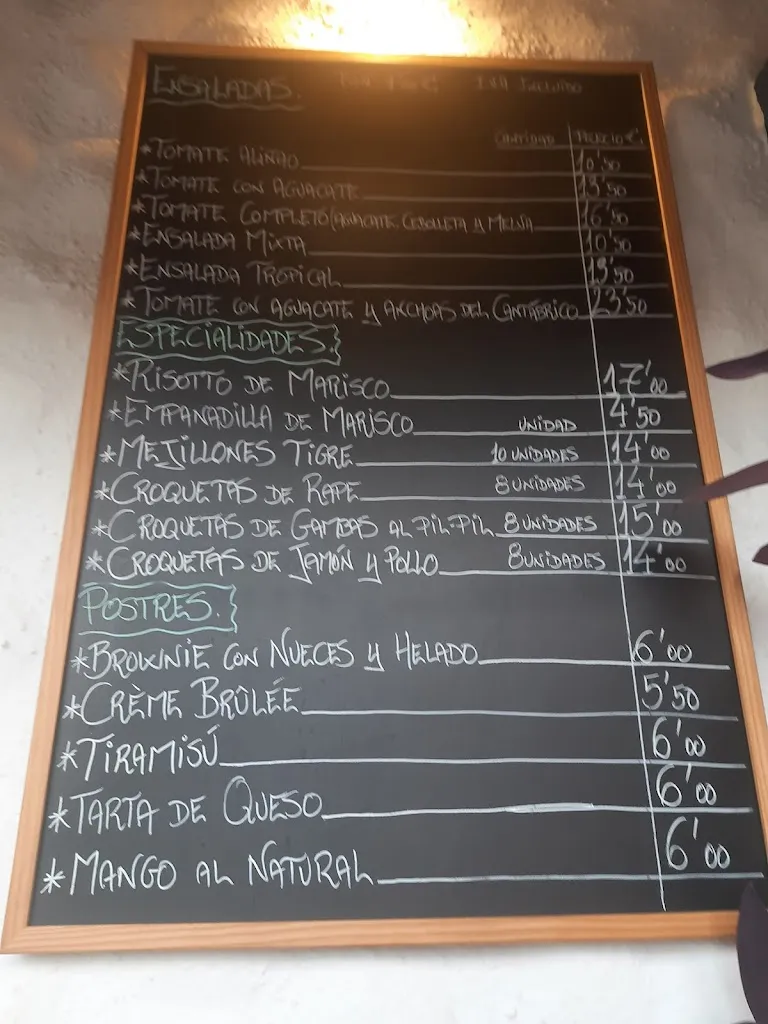 ENSALADAS. IVA INCLUIDO
CANTIDAD PRECIO €.
*TOMATE ALIÑAO 10'50
*TOMATE CON AGUACATE 13'50
*TOMATE COMPLETO (AGUACATE CEBOLLETA Y MELVA 16'50
*ENSALADA MIXTA 10'50
*ENSALADA TROPICAL 13'50
*TOMATE CON AGUACATE Y ANCHOAS DEL CANTÁBRICO 23'50
ESPECIALIDADES.
*RISOTTO DE MARISCO 17'00
*EMPANADILLA DE MARISCO UNIDAD 4'50
*MEJILLONES TIGRE 10 UNIDADES 14'00
*CROQUETAS DE RAPE 8 UNIDADES 14'00
*CROQUETAS DE GAMBAS AL PIL-PIL 8 UNIDADES 15'00
*CROQUETAS DE JAMÓN Y POLLO 8 UNIDADES 14'00
POSTRES.
*BROWNIE CON NUECES Y HELADO 6'00
*CRÈME BRÛLÉE 5'50
*TIRAMISÚ 6'00
*TARTA DE QUESO 6'00
*MANGO AL NATURAL 6'00